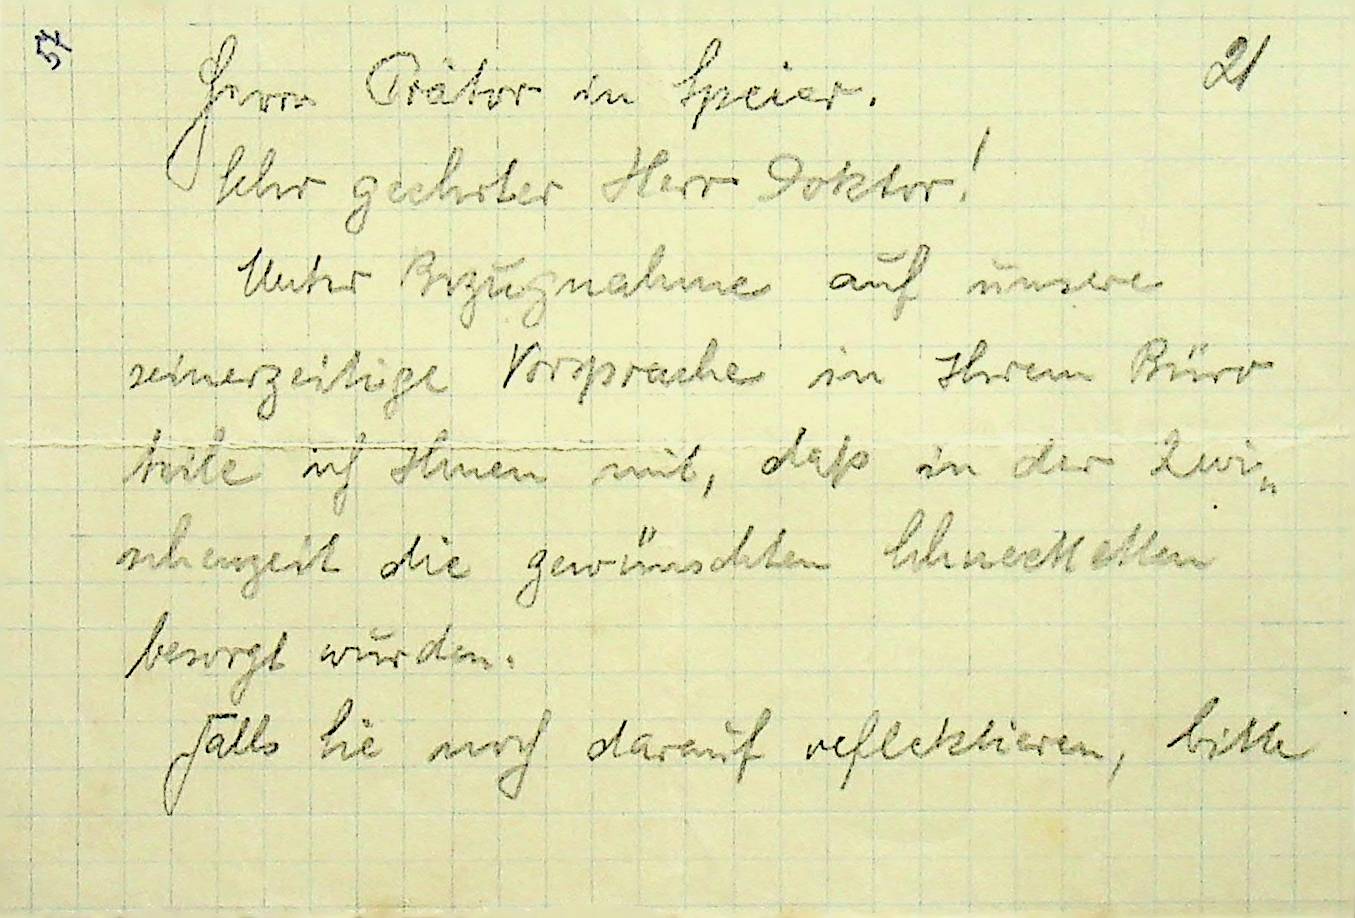 54
21
Herrn Prätor in Speier.
Sehr geehrter Herr Doktor!
Unter Bezugnahme auf unsere
seinerzeitige Vorsprache in Ihrem Büro
teile ich Ihnen mit, daß in der Zwi„
schenzeit die gewünschten Schneeketten
besorgt wurden.
Falls Sie noch darauf reflektieren, bitte